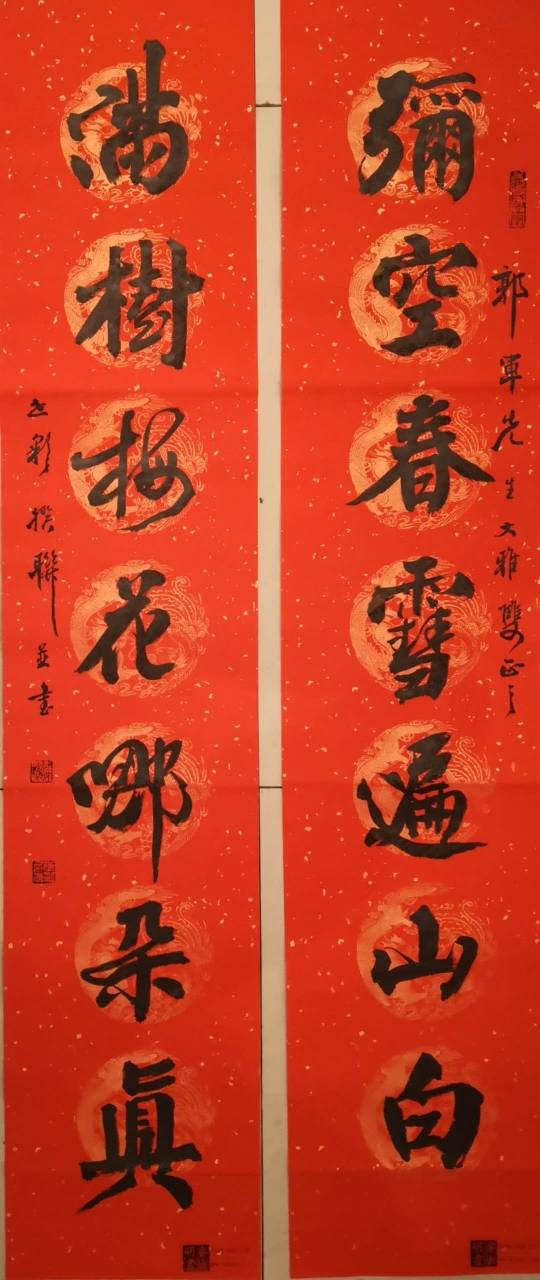 郭軍先生大雅雙正之
彌空春雪遍山白
滿樹梅花哪朵眞
撰聯並書